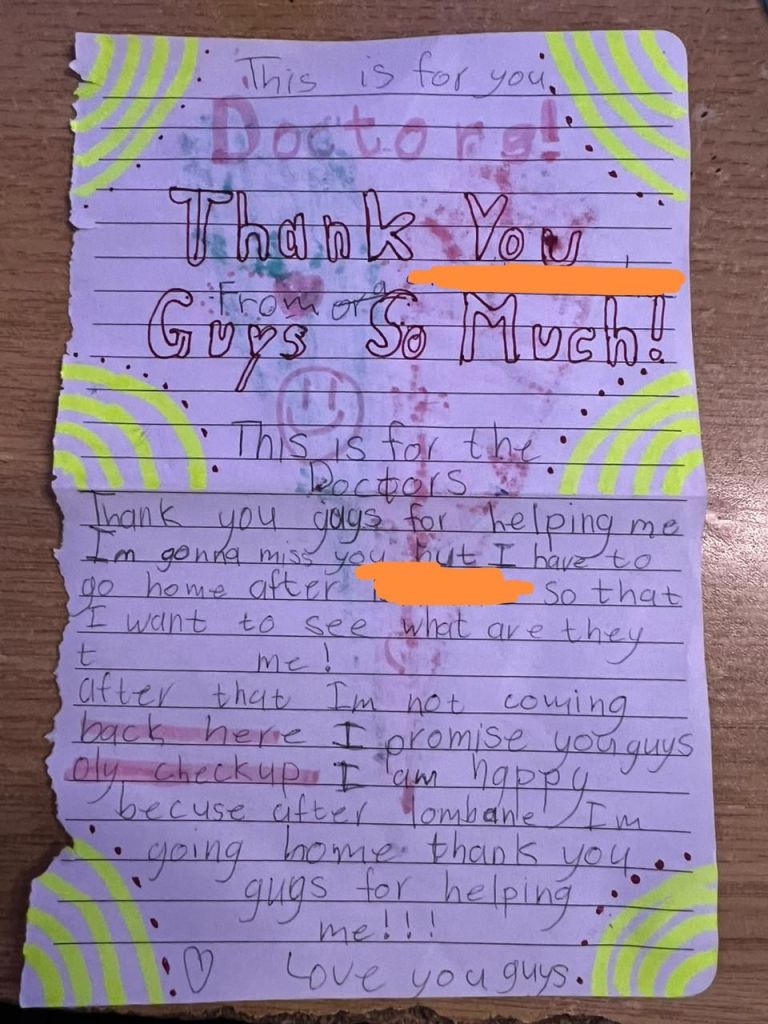 This is for you,
Doctors!
Thank You
From
Guys So Much!
This is for the
Doctors
Thank you guys for helping me
I'm gonna miss you but I have to
go home after So that
I want to see what are they
t me!
after that I'm not coming
back here I promise you guys
oly checkup I am happy
becuse after I'm
going home thank you
guys for helping
me!!!
♡ Love you guys.